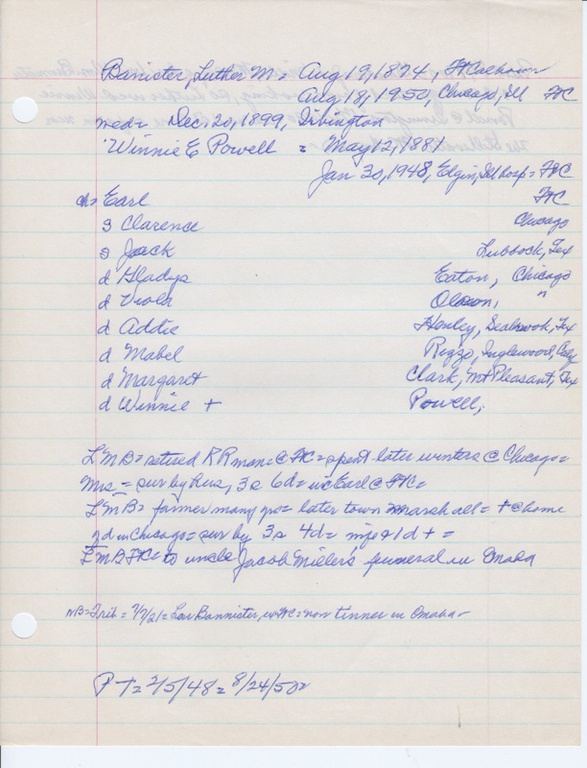 Banister, Luther M = Aug 19, 1874, Ft Calhoun
Aug 18, 1950, Chicago, Ill FtC
med = Dec. 20, 1899, Irvington
Winnie E Powell = May 12, 1881
Jan 30, 1948, Elgin, Ill hosp = FtC
ch = Earl FtC
s Clarence Chicago
s Jack Lubbock, Tex
d Gladys Eaton, Chicago
d Viola Olson, "
d Addie Henley, Seabrook, Tex
d Mabel Rizzo, Inglewood, Calif
d Margaret Clark, Mt Pleasant, Tex
d Winnie + Powell,
LMB = retired RR man @ FtC = spent later winters @ Chicago =
Mrs = sur by hus, 3s 6d = w Earl @ FtC =
LMB = farmer many yrs = later town marshall = + @ home
d in Chicago = sur by 3s 4d = & 1d + =
LMB FtC = to uncle Jacob Miller's funeral in Omaha
NB = Trib = 7/7/21 = Lou Bannister, = now tinner in Omaha
PT = 2/5/48 = 8/24/50 =